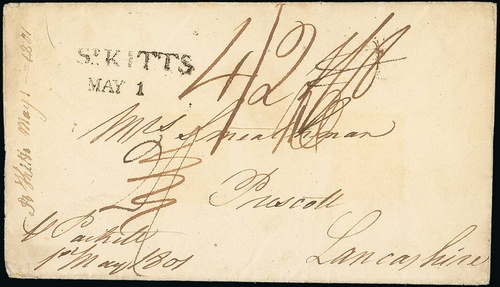 St KITTS
MAY 1
4/2
Mrs
Prescott
Lancashire
p Packett
1st May 1801
St Kitts May 1 - 1801